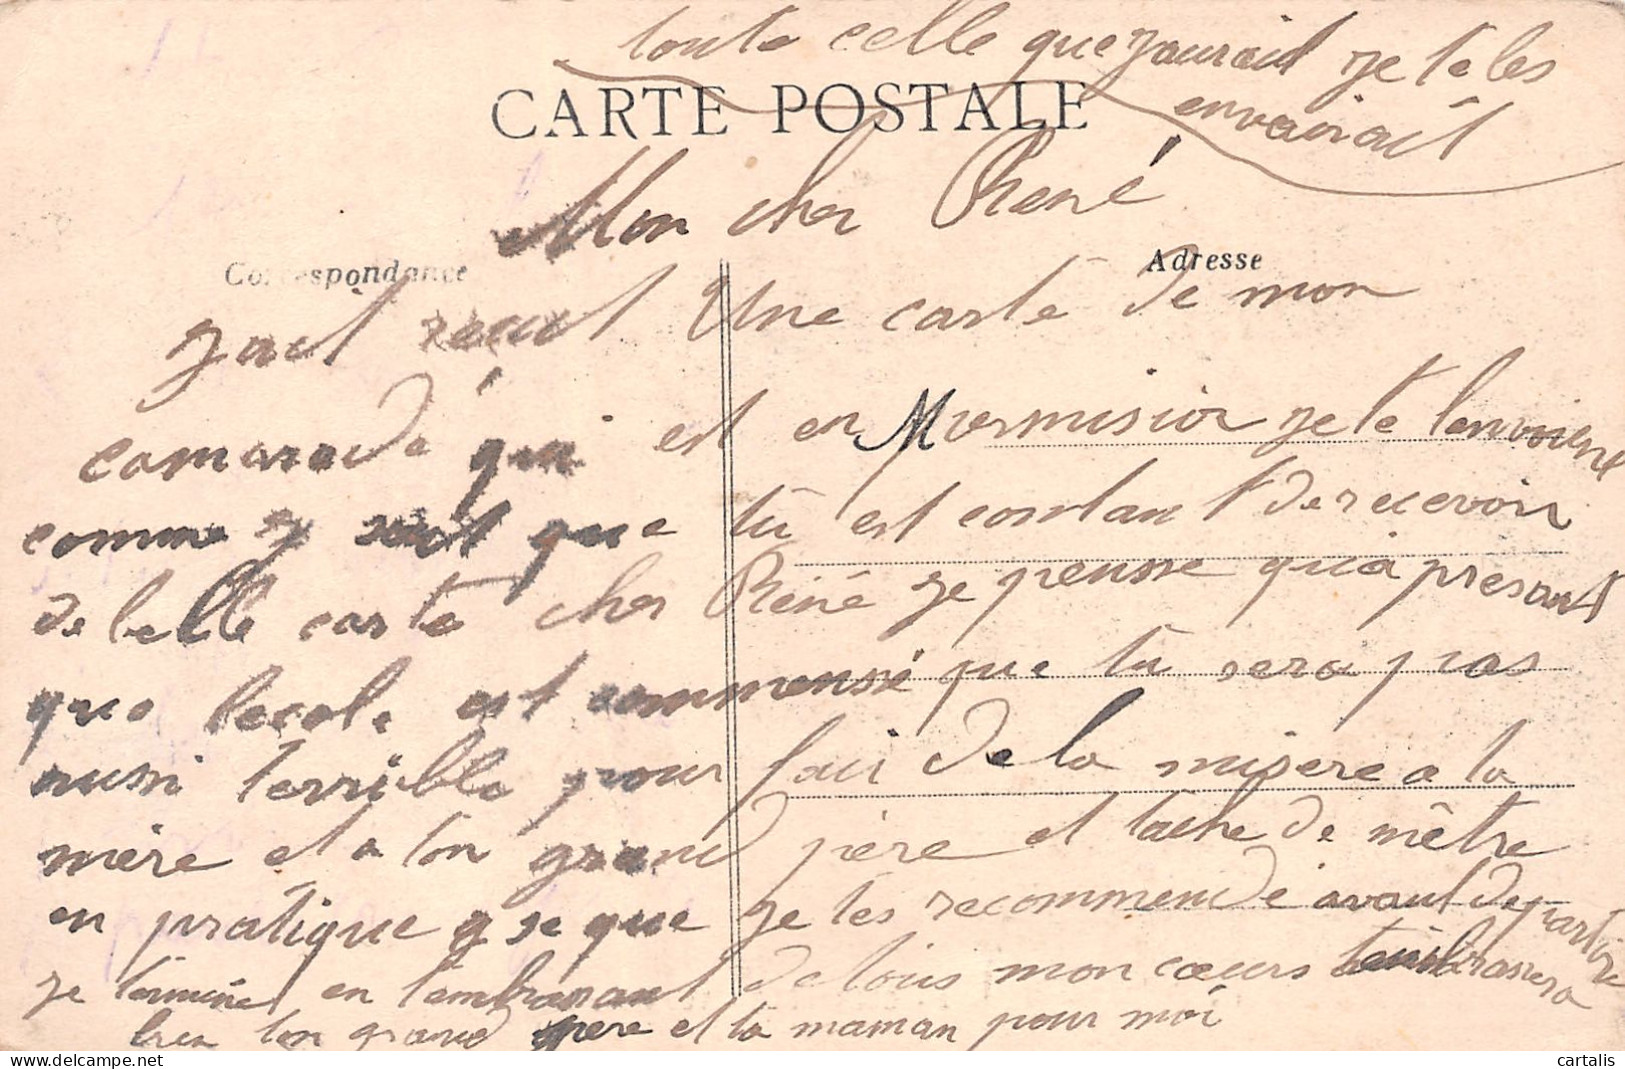 toute celle que jaurait je te les
envairait
CARTE POSTALE
Mon cher René
Correspondance
Adresse
jait recut Une carte de mon
camarade qui est en Mermision je te lenvoiene
comme y sait que tu est contant de recevoir
de belle carte cher René je pensse qu'a presant
que lecole est commenssé que tu sera pas
aussi terrible pour fair de la misere a ta
mère et a ton grand père et tache de mêtre
en pratique q se que je tes recommendé avant de partire
je termine en tembrasant de tous mon cœurs tembrassera
bien ton grand père et ta maman pour moi
cartalis